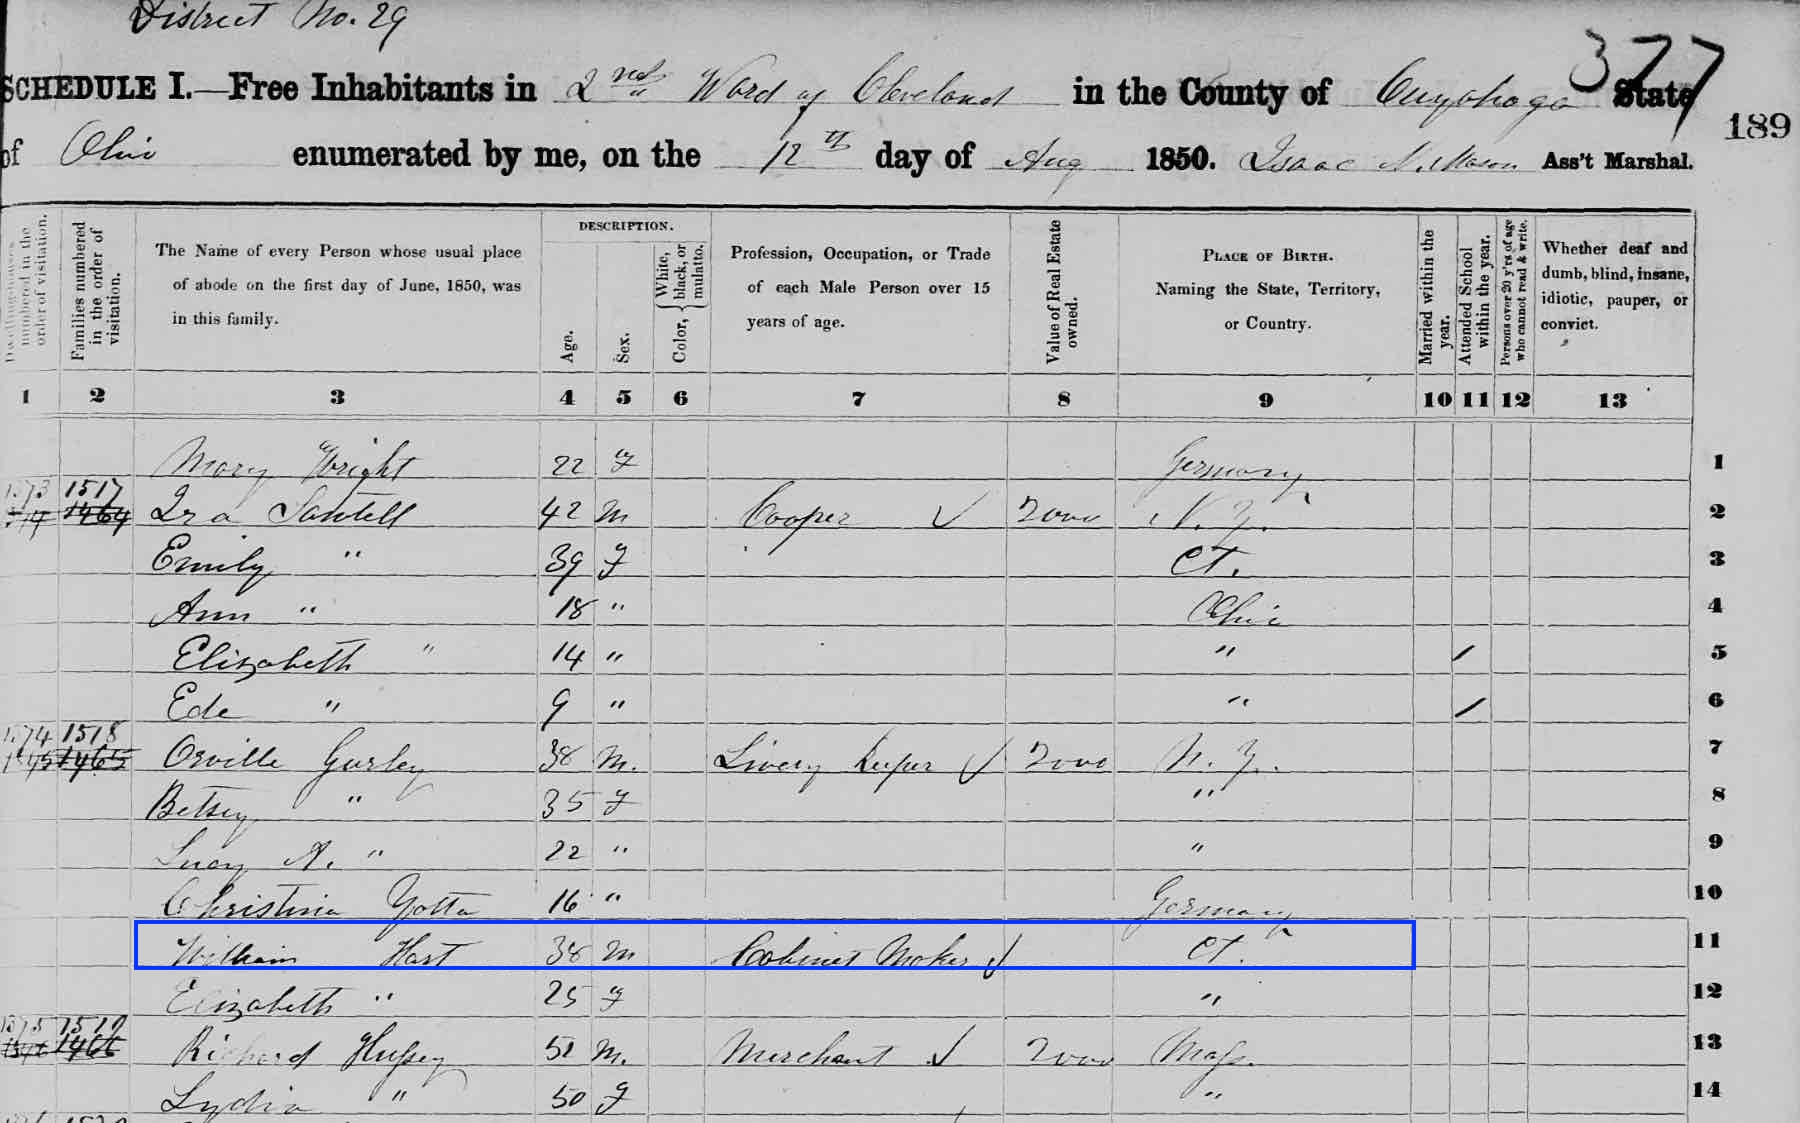 District No. 29
377
SCHEDULE I.—Free Inhabitants in 2nd Ward of Cleveland in the County of Cuyahoga State
189
of Ohio enumerated by me, on the 12th day of Aug 1850. Isaac N. Mason Ass't Marshal.
Dwelling-houses numbered in the order of visitation.
Families numbered in the order of visitation.
The Name of every Person whose usual place of abode on the first day of June, 1850, was in this family.
DESCRIPTION.
Age.
Sex.
Color, { White, black, or mulatto.
Profession, Occupation, or Trade of each Male Person over 15 years of age.
Value of Real Estate owned.
PLACE OF BIRTH. Naming the State, Territory, or Country.
Married within the year.
Attended School within the year.
Persons over 20 y'rs of age who cannot read & write.
Whether deaf and dumb, blind, insane, idiotic, pauper, or convict.
1 2 3 4 5 6 7 8 9 10 11 12 13
Mary Wright 22 F Germany 1
1573 1517
1464 Ira Sawtell 42 M Cooper ✓ 2000 N.Y. 2
Emily " 39 F Ct. 3
Ann " 18 " Ohio 4
Elizabeth " 14 " " / 5
Ede " 9 " " / 6
1574 1518
1465 Orville Gurley 38 M. Livery Keeper ✓ 2000 N.Y. 7
Betsey " 35 F " 8
Lucy A. " 22 " " 9
Christina Yotta 16 " Germany 10
William Hart 38 M Cabinet Maker ✓ Ct. 11
Elizabeth " 25 F " 12
1575 1519
1466 Richard Hussey 51 M. Merchant ✓ 2000 Mass. 13
Lydia " 50 F " 14